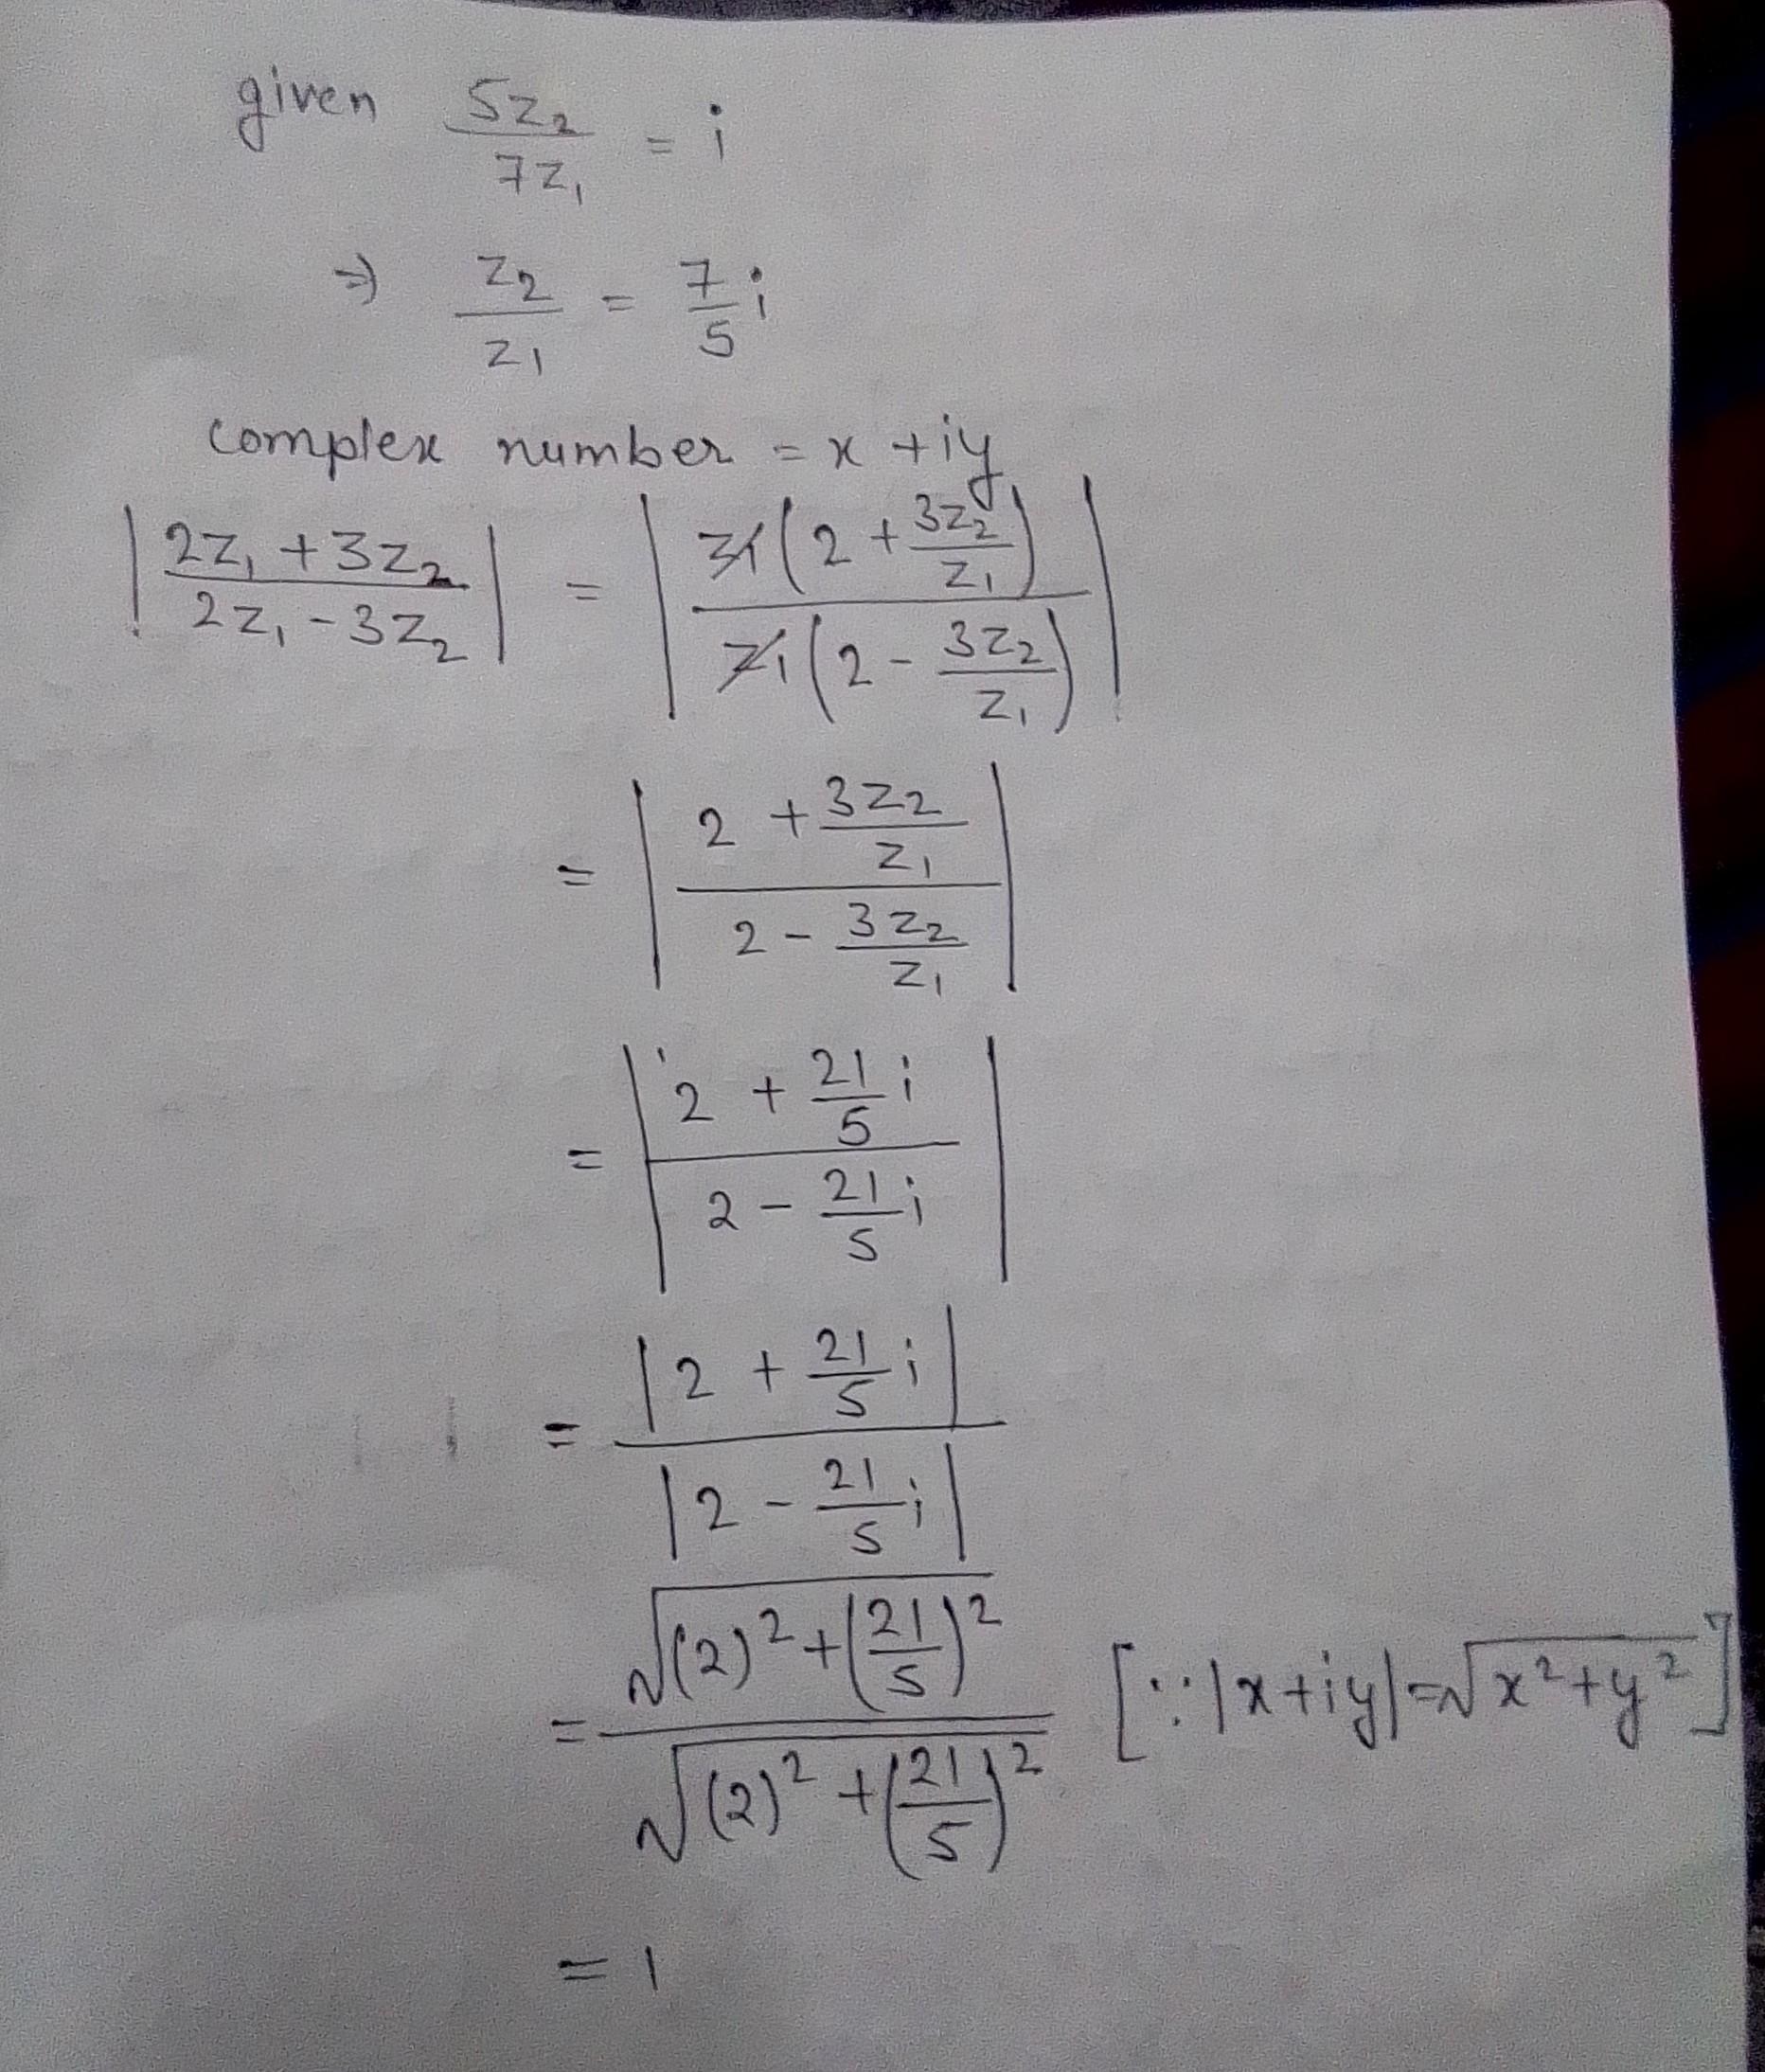 given 5z₂/7z₁ = i
⇒ z₂/z₁ = 7/5 i
complex number = x + iy
|(2z₁ + 3z₂)/(2z₁ - 3z₂)| = |z₁(2 + 3z₂/z₁)/z₁(2 - 3z₂/z₁)|
= |(2 + 3z₂/z₁)/(2 - 3z₂/z₁)|
= |(2 + 21/5 i)/(2 - 21/5 i)|
= |2 + 21/5 i|/|2 - 21/5 i|
= √((2)² + (21/5)²)/√((2)² + (21/5)²) [∵ |x + iy| = √(x² + y²)]
= 1